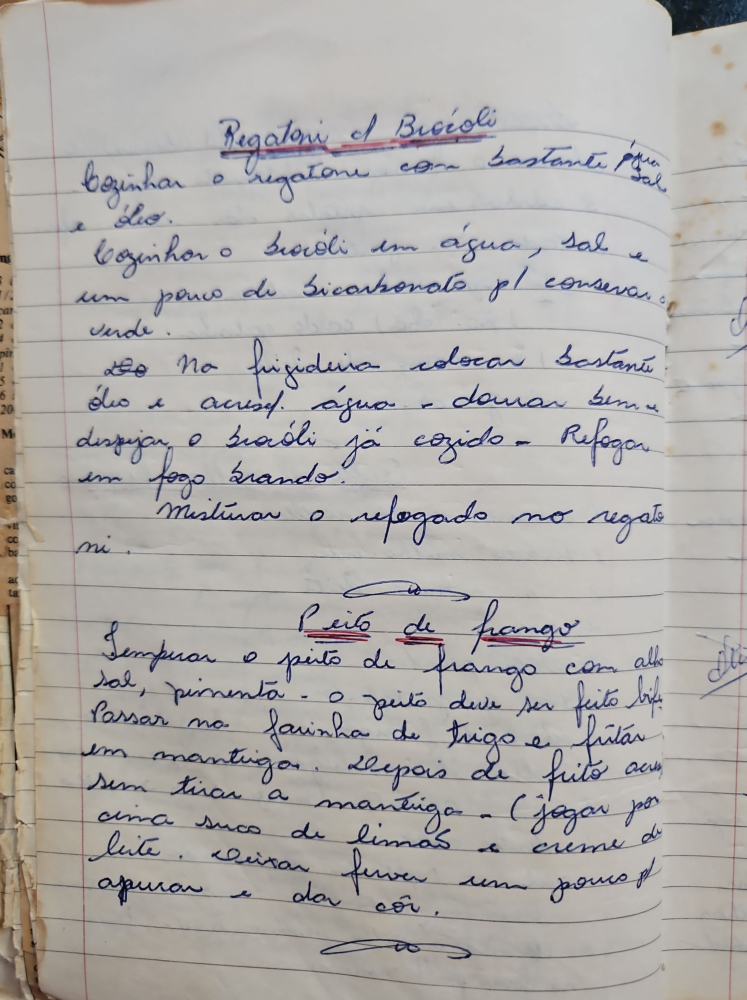 Regatoni c/ Brocóli
Cozinhar o regatone com bastante água
sal
e óleo.
Cozinhar o brocóli em água, sal e
um pouco de bicarbonato p/ conservar o
verde.
Na frigideira colocar bastante
óleo e acresc. água - dourar bem e
despejar o brocóli já cozido - Refogar
em fogo brando.
Misturar o refogado no regato
ni.
Peito de frango
Temperar o peito de frango com alho
sal, pimenta - o peito deve ser feito bife
Passar na farinha de trigo e fritar
em manteiga. Depois de frito acres
sem tirar a manteiga - (jogar por
cima suco de limão e creme de
leite. Deixar ferver um pouco p/
apurar e dar côr.